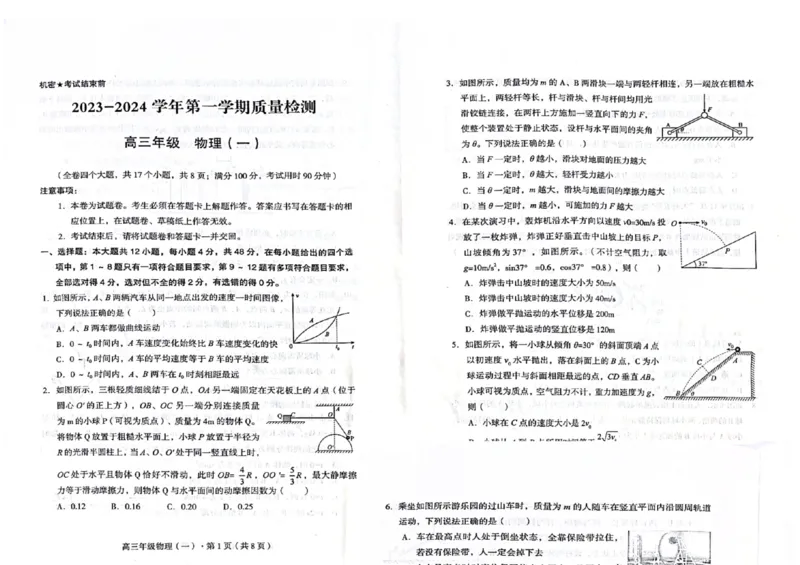 机密★考试结束前
2023-2024 学年第一学期质量检测
高三年级 物理(一)
(全卷四个大题,共17个小题,共8页;满分100分,考试用时90分钟)
注意事项:
1. 本卷为试题卷。考生必须在答题卡上解题作答。答案应书写在答题卡的相
应位置上,在试题卷、草稿纸上作答无效。
2. 考试结束后,请将试题卷和答题卡一并交回。
一、选择题:本大题共12小题,每小题4分,共48分,在每小题给出的四个选
项中,第1~8题只有一项符合题目要求,第9~12题有多项符合题目要求,
全部选对得4分,选对但不全的得2分,有选错的得0分。
1. 如图所示,A、B两辆汽车从同一地点出发的速度一时间图像,
下列说法正确的是( )
A. A、B两车都做曲线运动
B. 0~t₀时间内,A车速度变化始终比B车速度变化的快
C. 0~t₀时间内,A车的平均速度等于B车的平均速度
D. 0~t₀时间内,A、B两车在t₀时刻相距最远
v
A
B
0
t₀
t
2. 如图所示,三根轻质细线结于O点,OA另一端固定在天花板上的A点(位于
圆心O'的正上方),OB、OC另一端分别连接质量
为m的小球P(可视为质点)、质量4m的物体Q。
将物体Q放置于粗糙水平面上,小球P放置于半径为
R的光滑半圆柱上,当A、O、O'处于同一竖直线上时,
OC处于水平且物体Q恰好不滑动,此时OB=4/3R,OO'=5/3R,最大静摩擦
力等于滑动摩擦力,则物体Q与水平面间的动摩擦因数为( )
A. 0.12 B. 0.16 C. 0.20 D. 0.25
A
Q
C
O
B
P
O'
高三年级物理(一)·第1页(共8页)
3. 如图所示,质量均为m的A、B两滑块一端与两轻杆相连,另一端放在粗糙水
平面上,两轻杆等长,杆与滑块、杆与杆间均用光
滑铰链连接,在两杆上方施加一竖直向下的力F,
使整个装置处于静止状态,设杆与水平面间的夹角
为θ。下列说法正确的是( )
A. 当F一定时,θ越小,滑块对地面的压力越大
B. 当F一定时,θ越大,轻杆受力越小
C. 当θ一定时,m越大,滑块与地面间的摩擦力越大
D. 当θ一定时,m越小,可施加的力F越大
F
A
θ
B
4. 在某次演习中,轰炸机沿水平方向以速度v0=30m/s投
放了一枚炸弹,炸弹正好垂直击中山坡上的目标P,
山坡倾角为37°,如图所示,(不计空气阻力,取
g=10m/s²,sin37°=0.6,cos37°=0.8),则( )
A. 炸弹击中山坡时的速度大小为50m/s
B. 炸弹击中山坡时的速度大小为40m/s
C. 炸弹做平抛运动的水平位移是200m
D. 炸弹做平抛运动的竖直位移是120m
O
v₀
P
37°
5. 如图所示,将一小球从倾角θ=30°的斜面顶端A点
以初速度v₀水平抛出,落在斜面上的B点,C为小
球运动过程中与斜面相距最远的点,CD垂直AB。
小球可视为质点,空气阻力不计,重力加速度为g,
则( )
A. 小球在C点的速度大小是2v₀
2√3v₀
v₀
C
A
D
B
θ
6. 乘坐如图所示游乐园的过山车时,质量为m的人随车在竖直平面内沿圆周轨道
运动,下列说法正确的是( )
A. 车在最高点时人处于倒坐状态,全靠保险带拉住,
若没有保险带,人一定会掉下去